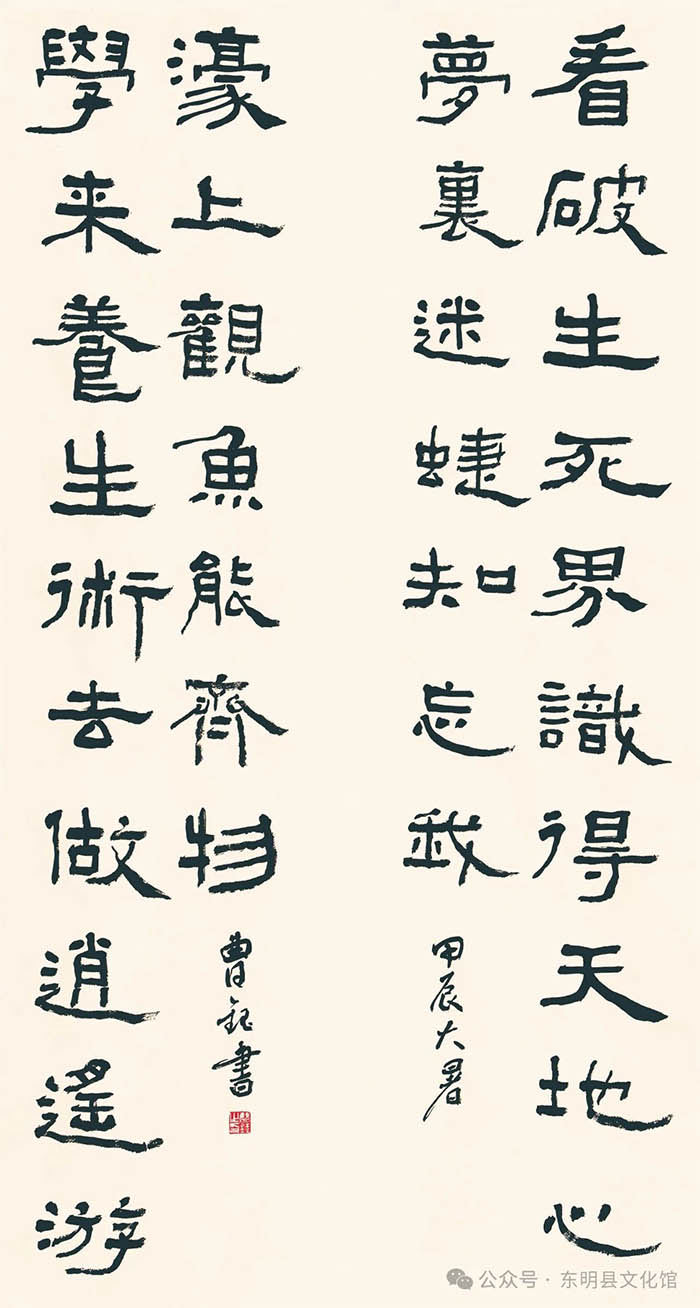 看破生死界識得天地心
夢裏迷蜨知忘我
甲辰大暑
學来養生術去做逍遙游
濠上觀魚能齊物
曹鈺書
公众号·东明县文化馆